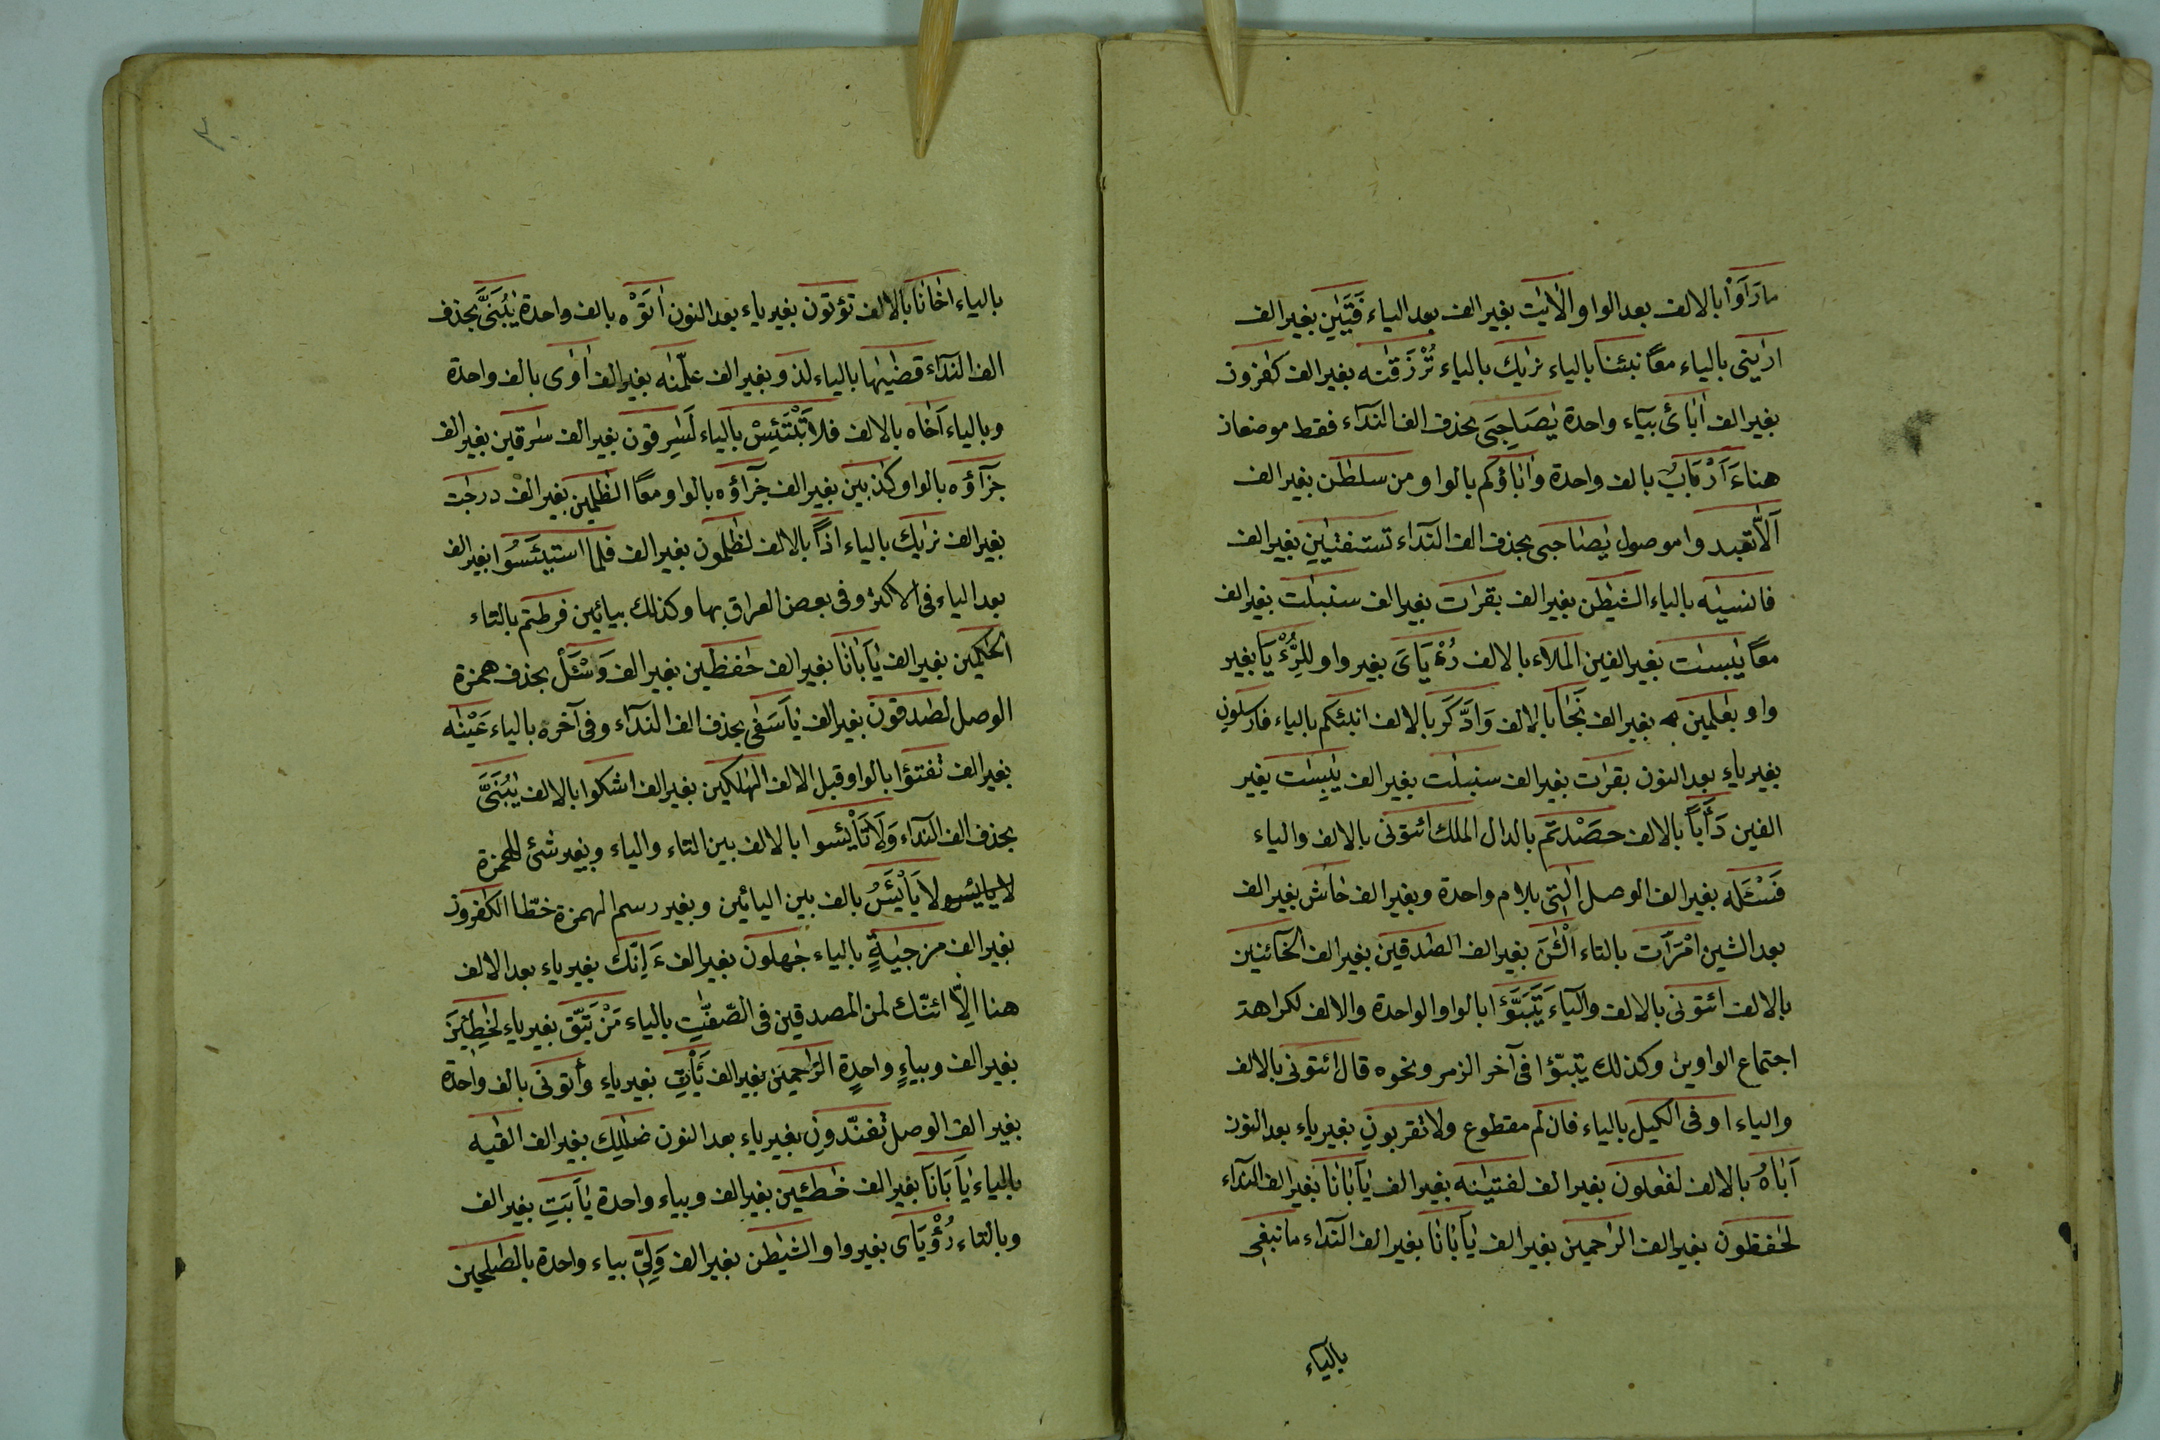 ما رَاَوُا بالالف بعد الواو الٰايٰت بغير الف بعد الياء فَتَيٰنِ بغير الف
ارٰينى بالياء معًا نبئنا بالياء نرٰيك بالياء تُرْزَقٰنه بغير الف كٰفرون
بغير الف اٰبٰائ بيآء واحدة يٰصَاحِبَىِ بحذف الف النداء فقط موضعان
هنا ءَاَرْبَابٌ بالف واحدة وٰاٰبٰاؤكم بالواو من سلطٰن بغير الف
اَلَّا تعبدوا موصول يٰصٰاحبى بحذف الف النداء تستفتيٰن بغير الف
فانسٰيه بالياء الشيطٰن بغير الف بقرٰات بغير الف سنبلٰت بغير الف
معًا يٰبسٰت بغير الفين الملاء بالالف رُءْيَاىَ بغير واو للرُّءْيَا بغير
واو بعٰلمين بغير الف نَجٰا بالالف وَادَّكَرَ بالالف انبئكم بالياء فارسلونِ
بغير ياء بعد النون بقرٰت بغير الف سنبلٰت بغير الف يٰبِسٰت بغير
الفين دَأَباً بالالف حصَدْتم بالدال الملك ائتونى بالالف والياء
فَسْـَٔله بغير الف الوصل الٰتى بلام واحدة وبغير الف حٰاش بغير الف
بعد الشين امْرَاَت بالتاء الْـٰٔنَ بغير الف الصٰدقين بغير الف الخآئنين
بالالف ائتونى بالالف والياء يَتَبَوَّؤا بالواو الواحدة والالف لكراهة
اجتماع الواوين وكذلك يتبوّؤا فى آخر الزمر ونحوه قال ائتونى بالالف
والياء اوفى الكيل بالياء فان لم مقطوع ولا تقربون بغير ياء بعد النون
اَبٰاهُ بالالف لفٰعلون بغير الف لفتيٰنه بغير الف يٰاَبٰانٰا بغير الف النداء
لحٰفظون بغير الف الرٰحمين بغير الف يٰاَبٰانٰا بغير الف النداء ما نبغى
بالياء
بالياء اخٰانٰا بالالف تؤتون بغير ياء بعد النون اٰتَوْه بالف واحدة يٰبُنَىَّ بحذف
الف النداء قضٰيها بالياء لذو بغير الف علّمنٰه بغير الف اٰوٰى بالف واحدة
وبالياء اَخٰاه بالالف فلا تَبْتَئِسْ بالياء لَسٰرِقون بغير الف سٰرقين بغير الف
جزآؤه بالواو كٰذبين بغير الف جزآؤه بالواو معًا الظٰلمين بغير الف درجٰت
بغير الف نرٰيك بالياء اذاً بالالف لظٰلمون بغير الف فلما استيئَسُوا بغير الف
بعد الياء فى الاكثر وفى بعض العراق بها وكذلك بيائين فرطتم بالتاء
الحٰكمين بغير الف يٰاَبٰانٰا بغير الف حٰفظين بغير الف وَسْـَٔل بحذف همزة
الوصل لصٰدقون بغير الف يٰاَسَفٰى بحذف الف النداء وفى آخره بالياء عَيْنٰه
بغير الف تفتؤا بالواو قبل الالف الهٰلكين بغير الف اشكوا بالالف يٰبُنَىَّ
بحذف الف النداء وَلَا تَاْيْئسوا بالالف بين التاء والياء وبغير شئ للهمزة
لا يَاْيْئَسُ بالف بين اليائين وبغير رسم الهمزة خطّا الكٰفرون
بغير الف مزجٰيةٍ بالياء جٰهلون بغير الف ءَ اِنّك بغير ياء بعد الالف
هنا اِلّا ائنّك لمن المصدقين فى الصّفّٰتِ بالياء مَنْ يَتّقِ بغير ياء لخٰطِئِينَ
بغير الف وبياءٍ واحدةٍ الرّٰحمين بغير الف يَأْتِ بغير ياء وأتونى بالف واحدة
بغير الف الوصل تفنّدون بغير ياء بعد النون ضلٰلك بغير الف القٰيه
بالياء يٰاَبَانَا بغير الف خٰطئين بغير الف وبياء واحدة يٰاَبَتِ بغير الف
وبالتاء رُؤْيَاى بغير واو الشيطٰن بغير الف وَلِىّٖ بياء واحدة بالصٰلحين